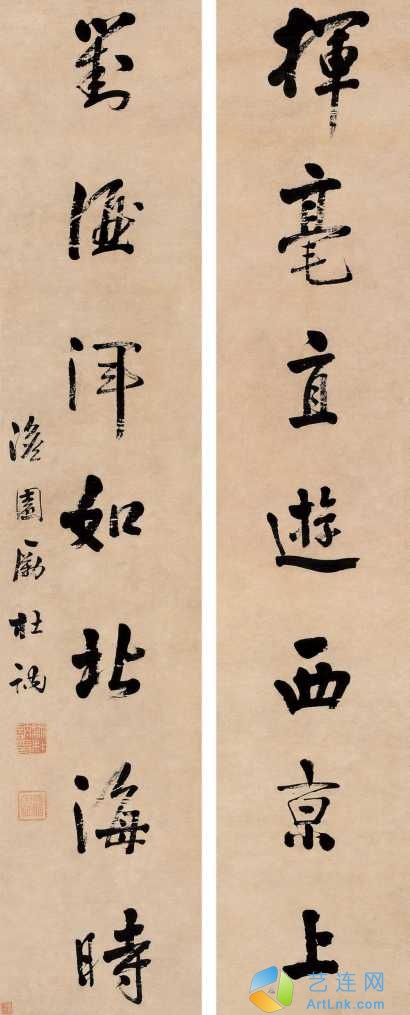 揮毫直遊西京上
對酒渾如北海時
澹園厲杜訥
艺连网
ArtLnk.com